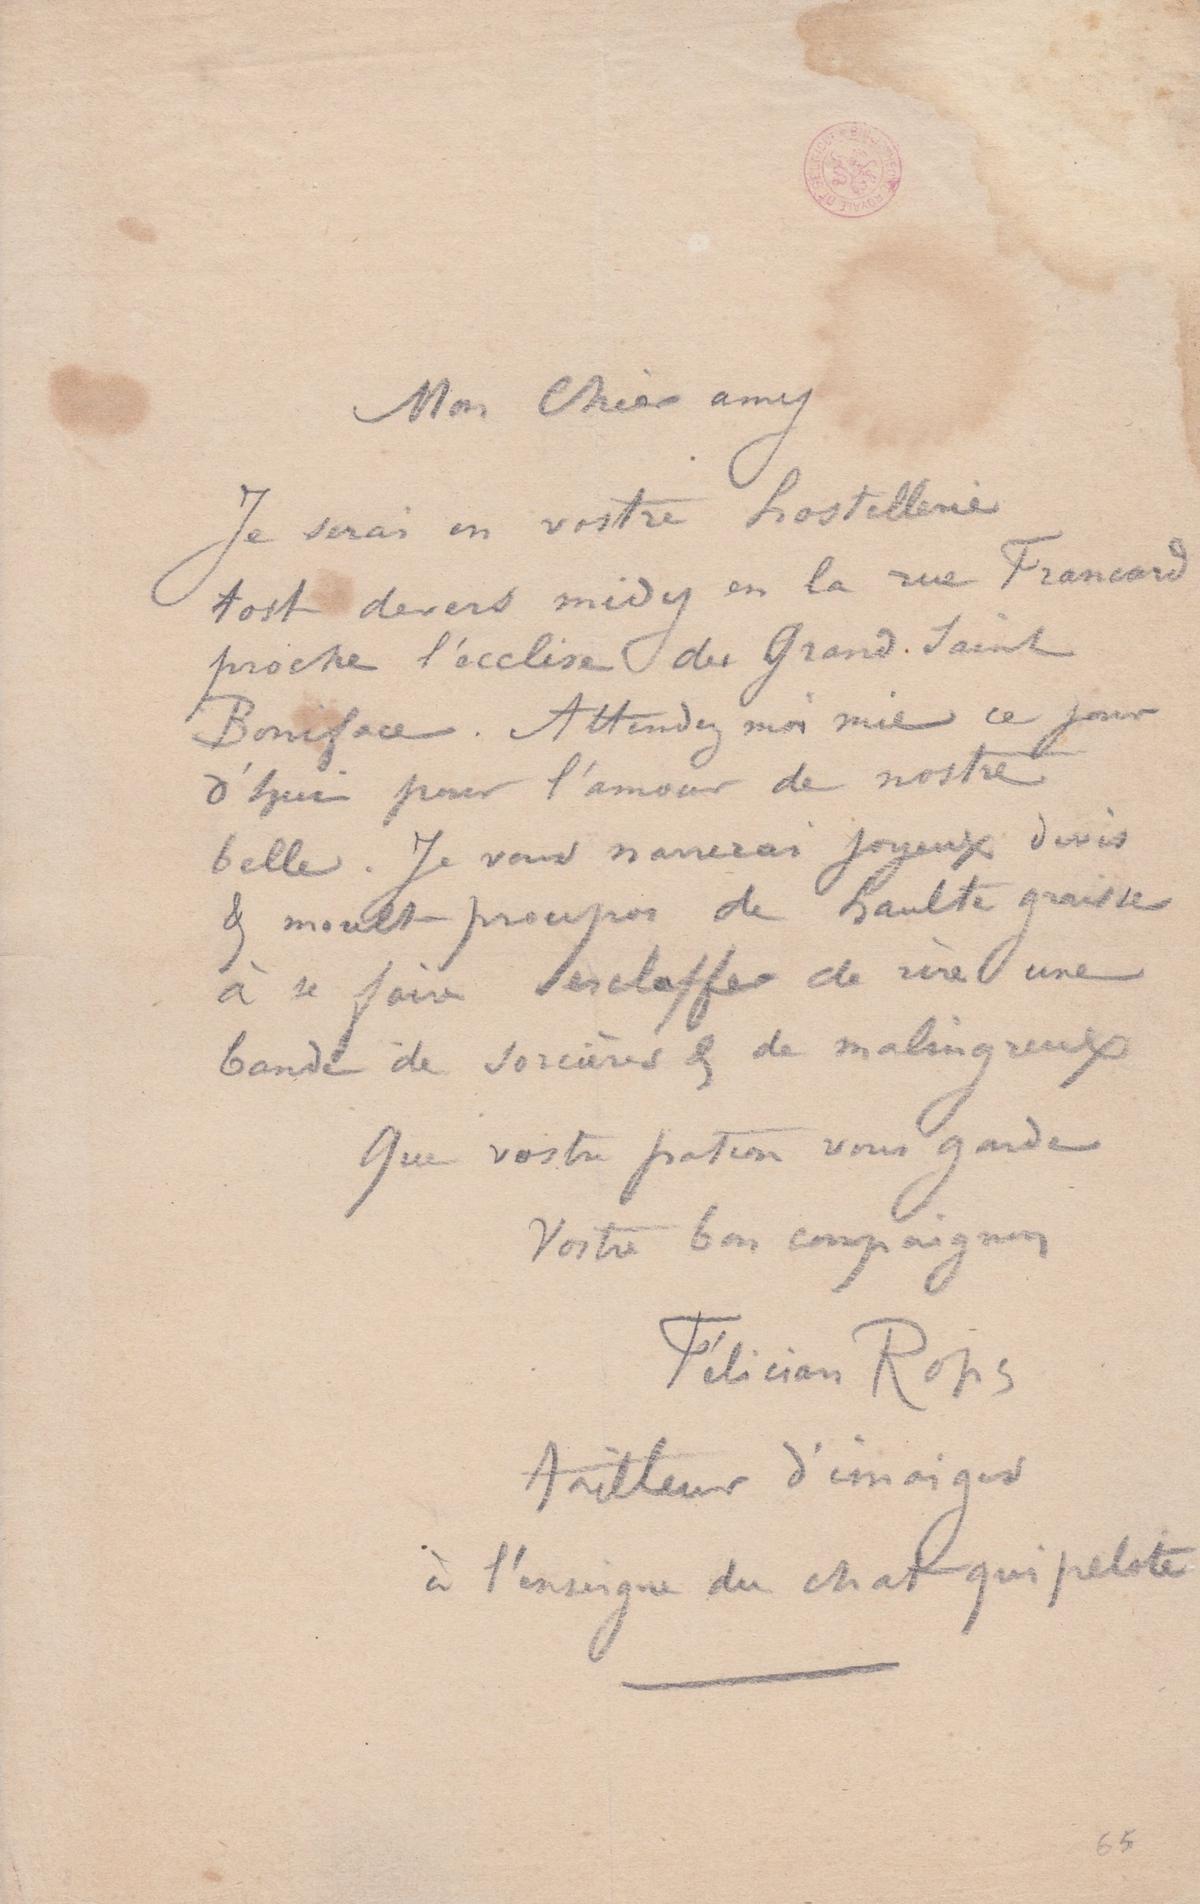 BIBLIOTHEQUE ROYALE DE BELGIQUE
Mon Chier amy
Je serai en vostre hostellerie
tost devers midy en la rue Francard
proche l'ecclise du Grand. Saint
Boniface. Attendez moi mie ce jour
d'hui pour l'amour de nostre
belle. Je vous narrerai joyeux devis
& moult proupos de haulte graisse
à se faire esclaffer de rire une
bande de sorcières & de malingreux
Que vostre patron vous garde
Vostre bon compaignon
Félician Rops
tailleur d'imaiges
à l'enseigne du chat qui pelote
65